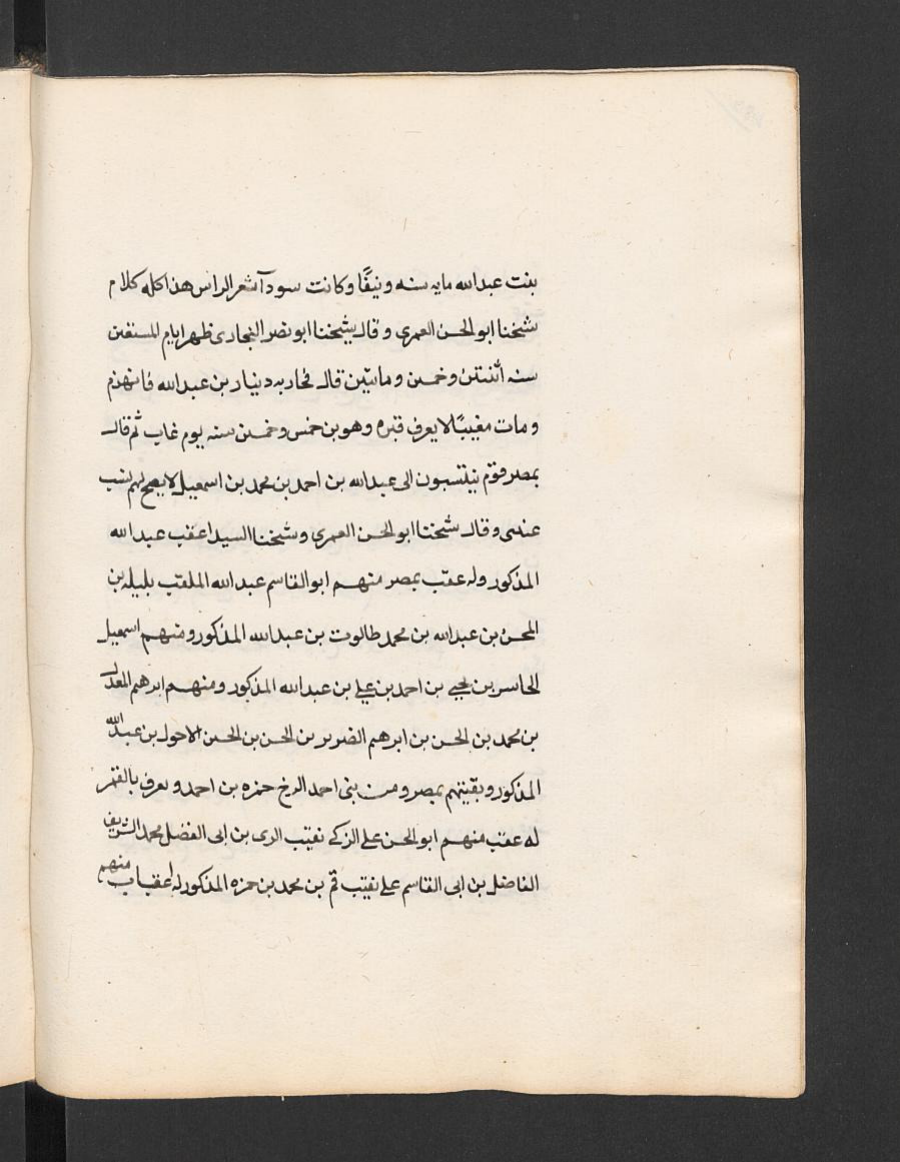 بنت عبدالله مايه سنه ونيفًا وكانت سودآ شعر الراس هذا كله كلام
شيخنا ابو الحسن العمرى وقال شيخنا ابو نصر النجارى ظهر ايام المستعين
سنه اثنتين وخمسين ومائتين قال فحاربه دينار بن عبدالله فانهزم
ومات مغيبًا لا يعرف قبره وهو بن خمس وخمسين سنه يوم غاب ثم قال
بمصر قوم ينتسبون الى عبدالله بن احمد بن محمد بن اسمعيل لا يصح لهم نسب
عندى وقال شيخنا ابو الحسن العمرى وشيخنا السيد اعقب عبدالله
المذكور وله عقب بمصر منهم ابو القاسم عبدالله الملقب بليله بن
المحسن بن عبدالله بن محمد طالوت بن عبدالله المذكور ومنهم اسمعيل
الحاسر بن يحيى بن احمد بن على بن عبدالله المذكور ومنهم ابرهيم المعدل
بن محمد بن الحسن بن ابرهيم الضرير بن الحسن بن الحسين الاحول بن عبدالله
المذكور وبقيتهم بمصر ومن بنى احمد الرخ حمزه بن احمد ويعرف بالقمر
له عقب منهم ابو الحسن على الزكى نقيب الرى بن ابى الفضل محمد الشريف
الفاضل بن ابى القاسم على نقيب قم بن محمد بن حمزه المذكور له اعقاب منهم